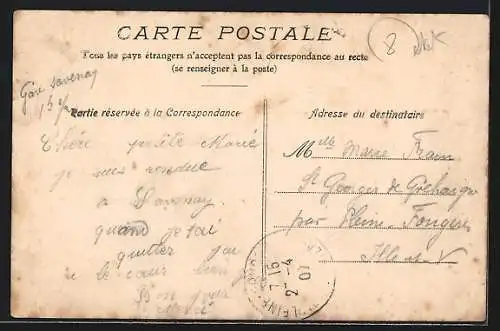 CARTE POSTALE
Tous les pays étrangers n'acceptent pas la correspondance au recto
(se renseigner à la poste)
8
Gare Savenay
Partie réservée à la Correspondance
Adresse du destinataire
Chère petite Marie
je suis rendue
a Savenay.
quand je tai
quitter jai
le cœur
Bon jour
Mlle Marie
St Georges de Gréhaigne
par Pleine-Fougères
Ille-et-V
7-15
2-4
07